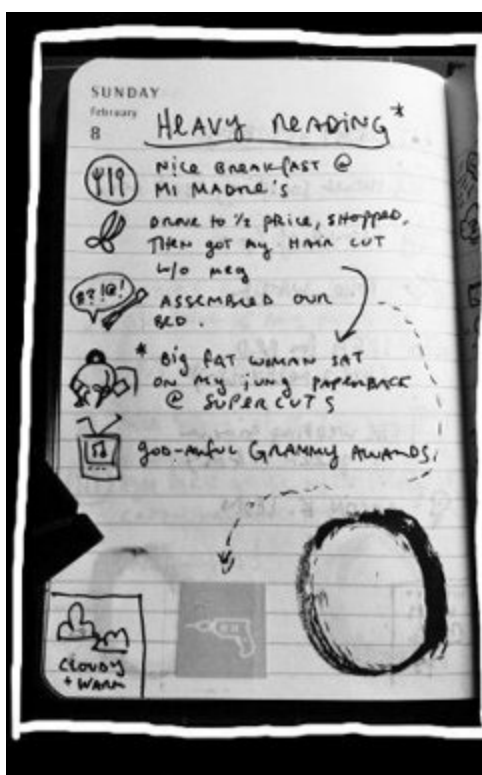 SUNDAY
February
8
HEAVY READING*
NICE BREAKFAST @
MI MADRE'S
DROVE TO ½ PRICE, SHOPPED,
THEN GOT MY HAIR CUT
W/O MEG
#?!@!
ASSEMBLED OUR
BED.
* BIG FAT WOMAN SAT
ON MY JUNG PAPERBACK
@ SUPERCUTS
GOD-AWFUL GRAMMY AWARDS.
CLOUDY
+ WARM